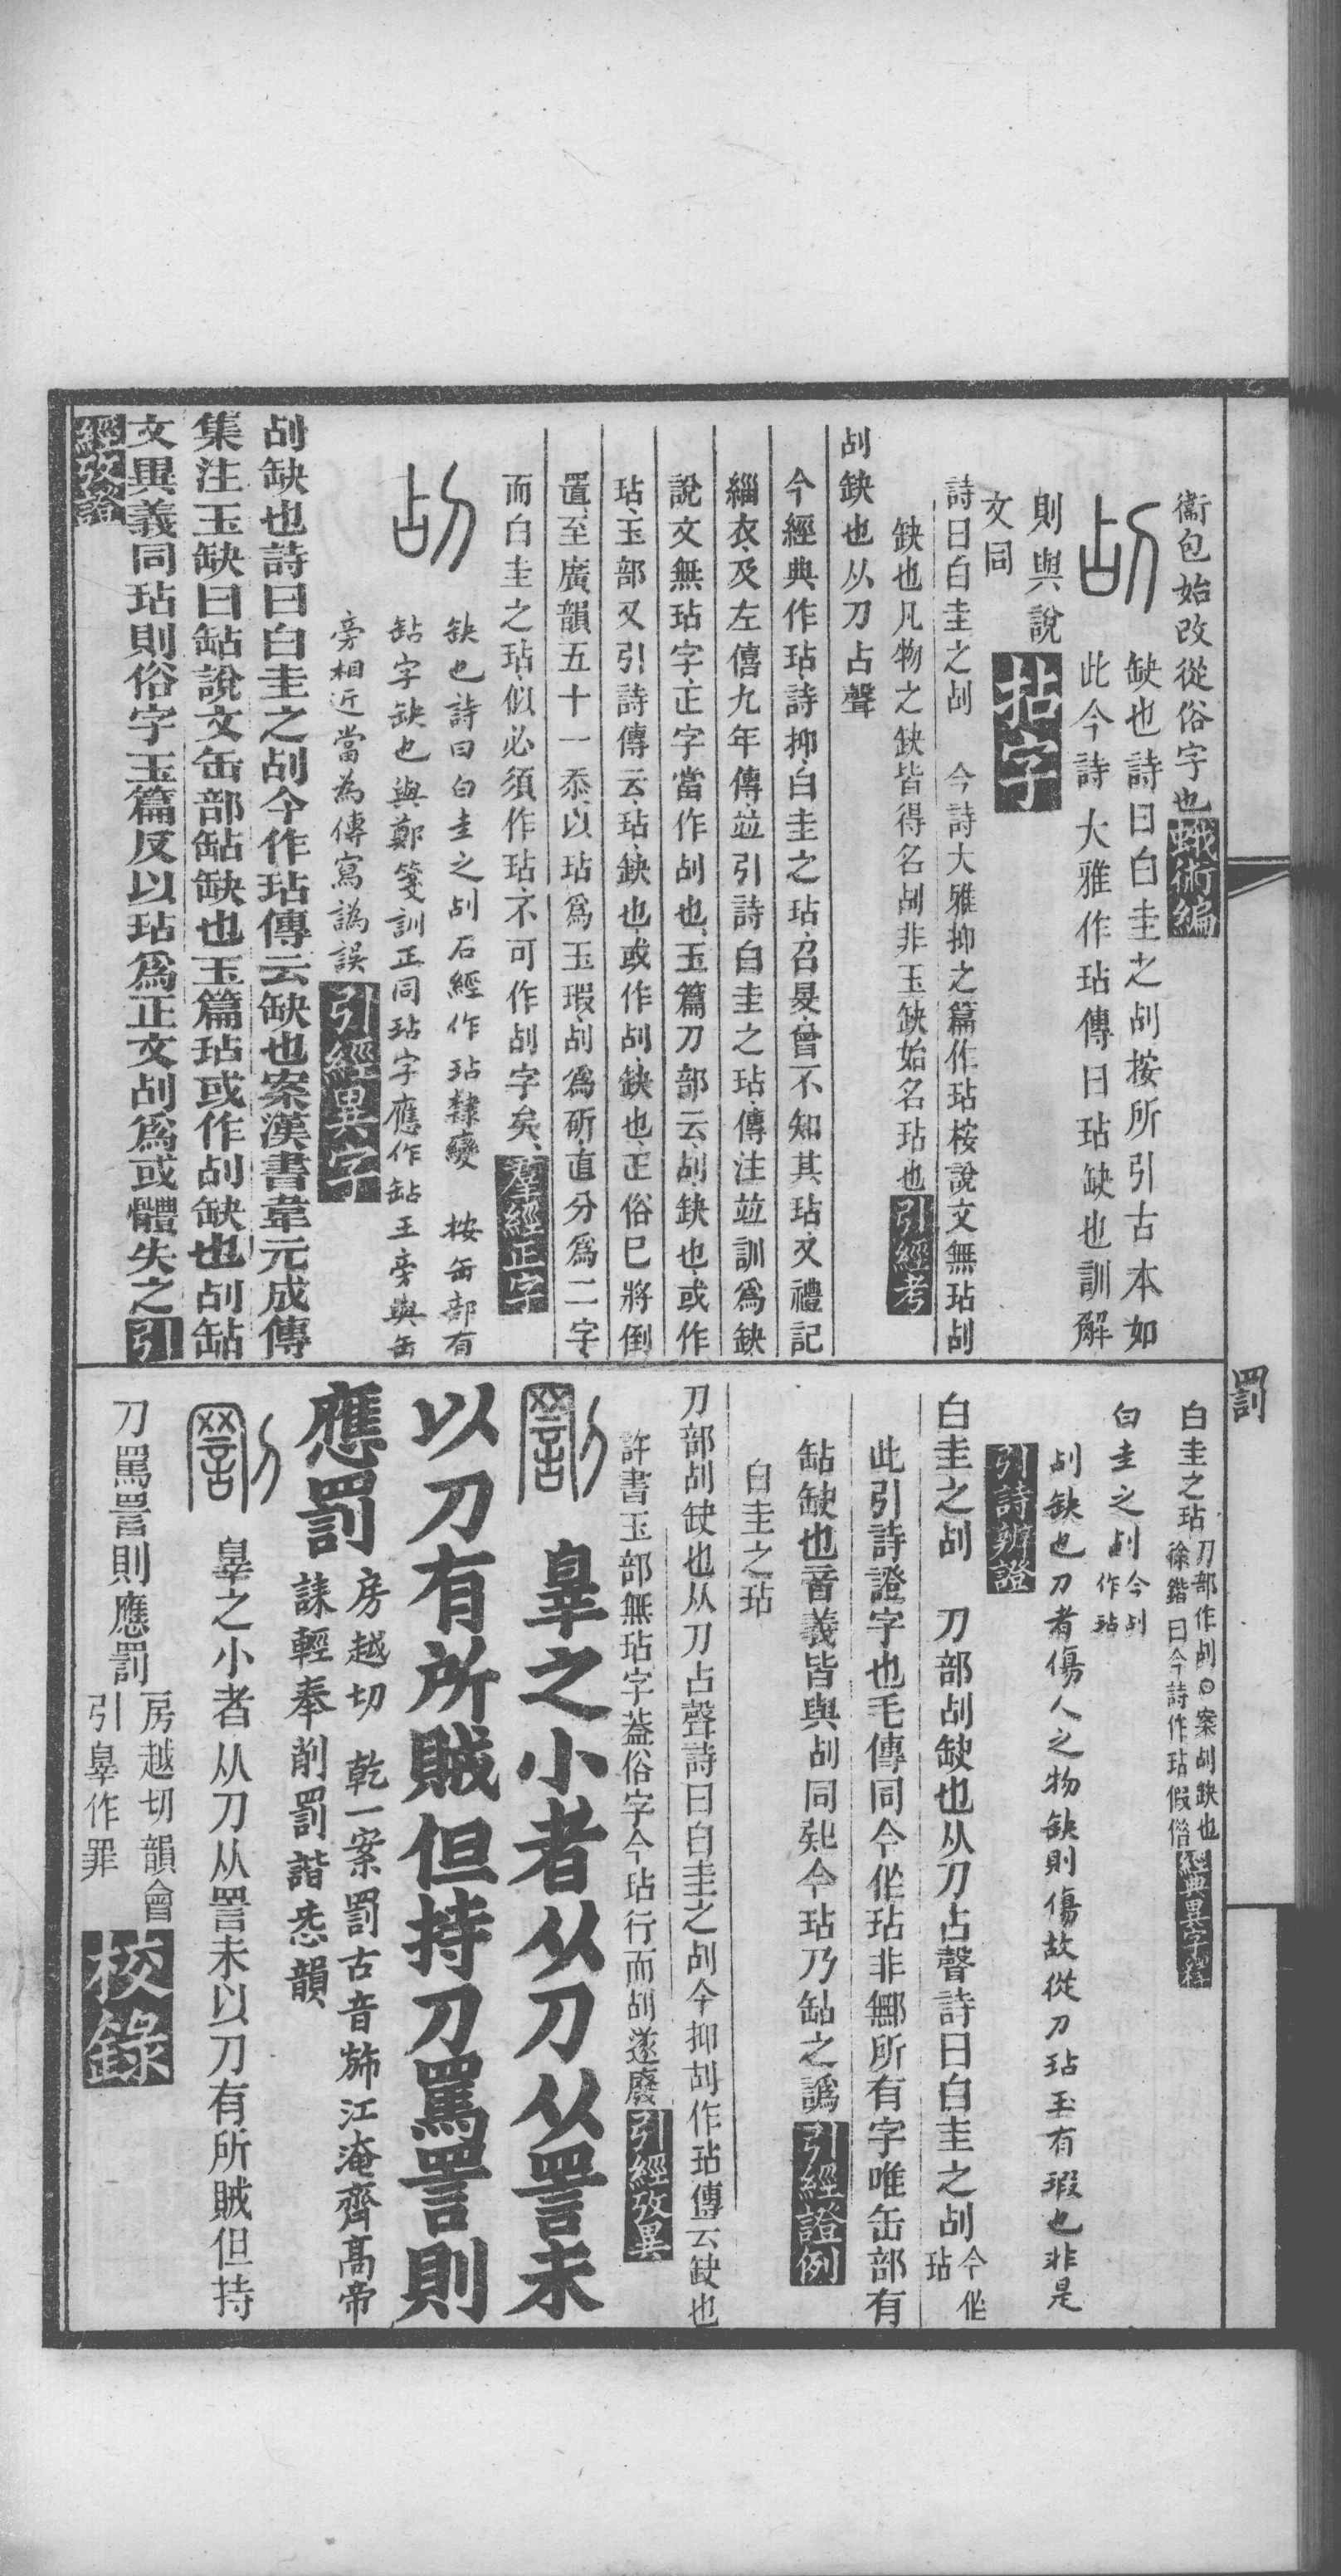 衞包始改從俗字也蛾術編
刮缺也詩曰白圭之刮按所引古本如
此今詩大雅作玷傳曰玷缺也訓解
則與說
文同
拈字
詩曰白圭之刮 今詩大雅抑之篇作玷桉說文無玷刮
缺也凡物之缺皆得名刮非玉缺始名玷也引經考
刮缺也从刀占聲
今經典作玷詩抑白圭之玷召旻曾不知其玷又禮記
緇衣及左僖九年傳竝引詩白圭之玷傳注竝訓爲缺
說文無玷字正字當作刮也玉篇刀部云刮缺也或作
玷玉部又引詩傳云玷缺也或作刮缺也正俗已將倒
置至廣韻五十一忝以玷爲玉瑕刮爲斫直分爲二字
而白圭之玷似必須作玷不可作刮字矣羣經正字
缺也詩曰白圭之刮石經作玷隸變 按缶部有
㓠字缺也與鄭箋訓正同玷字應作㓠王旁與缶
旁相近當為傳寫譌誤引經異字
刮缺也詩曰白圭之刮今作玷傳云缺也案漢書韋元成傳
集注玉缺曰㓠說文缶部㓠缺也玉篇玷或作刮缺也刮㓠
文異義同玷則俗字玉篇反以玷爲正文刮爲或體失之引
經攷證
罰
白圭之玷刀部作刮○案刮缺也
徐鍇曰今詩作玷假借經典異字釋
白圭之刮今刮
作玷
刮缺也刀者傷人之物缺則傷故從刀玷玉有瑕也非是
引詩辨證
白圭之刮 刀部刮缺也从刀占聲詩曰白圭之刮今作
玷
此引詩證字也毛傳同今作玷非鄦所有字唯缶部有
㓠缺也音義皆與刮同然今玷乃㓠之譌引經證例
白圭之玷
刀部刮缺也从刀占聲詩曰白圭之刮今抑刮作玷傳云缺也
許書玉部無玷字葢俗字今玷行而刮遂廢引經攷異
辠之小者从刀从詈未
以刀有所賊但持刀罵詈則
應罰
房越切 乾一案罰古音斾江淹齊高帝
誄輕奉削罰諧恚韻
辠之小者从刀从詈未以刀有所賊但持
刀罵詈則應罰
房越切韻會
引辠作罪
校錄